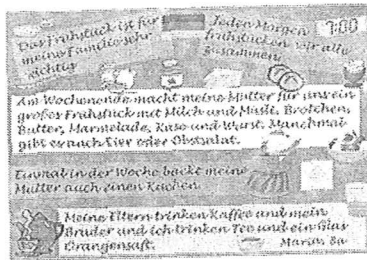 Das Frühstück ist für
meine Familie sehr
wichtig.
Jeden Morgen
frühstücken wir alle
zusammen.
7:00
Am Wochenende macht meine Mutter für uns ein
großes Frühstück mit Milch und Müsli, Brötchen,
Butter, Marmelade, Käse und Wurst. Manchmal
gibt es auch Eier oder Obstsalat.
Einmal in der Woche backt meine
Mutter auch einen Kuchen.
Meine Eltern trinken Kaffee und mein
Bruder und ich trinken Tee und ein Glas
Orangensaft.
8a